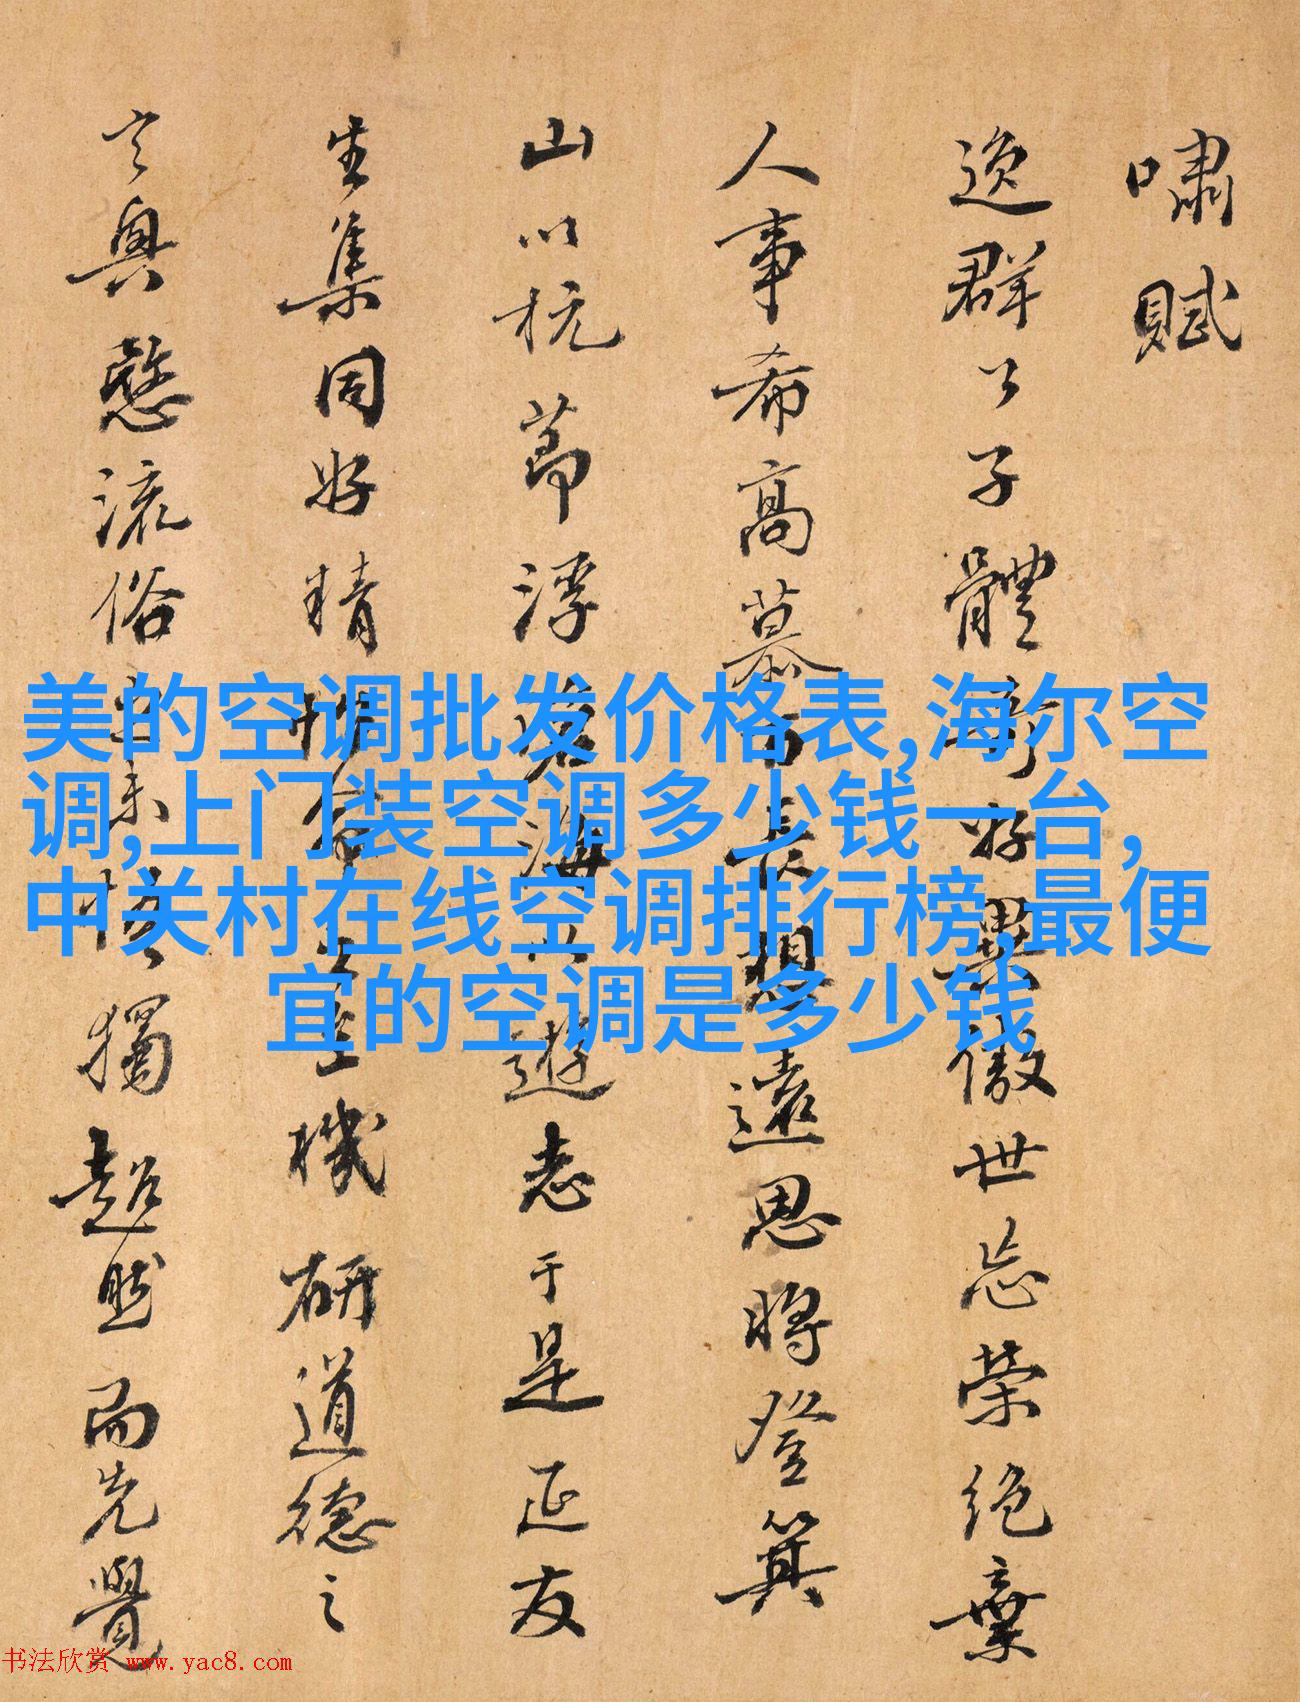 啸赋
逸群公子體奇好異傲世忘榮絶棄
人事希高慕古長想遠思將登箕
山以抗節浮滄海以遊志于是延友
生集同好精性命之至機研道德之
玄奥愍流俗之未悟獨超然而先覺
美的空调批发价格表,海尔空
调,上门装空调多少钱一台,
中关村在线空调排行榜,最便
宜的空调是多少钱
书法欣赏 www.yac8.com